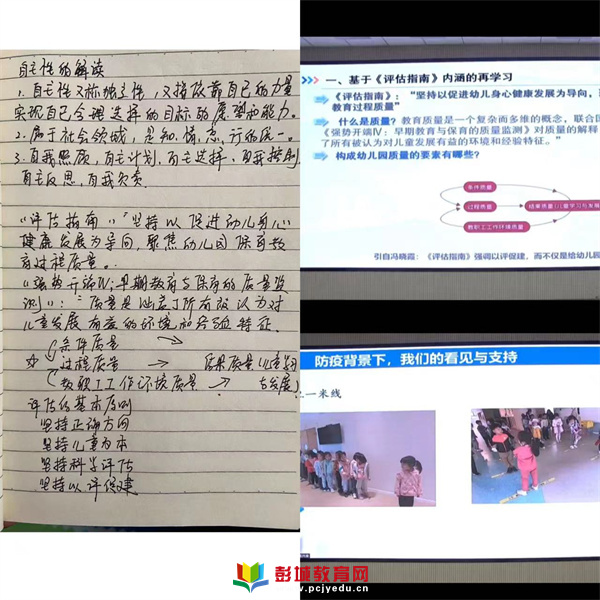 自主性的解读
1. 自主性又称独立性,又指依靠自己的力量
实现自己合理选择的目标的愿望和能力。
2. 属于社会领域,是知、情、意、行的统一。
3. 自我照顾,自主计划,自主选择,自我控制
自主反思,自我负责
《评估指南》“坚持以促进幼儿身心
健康发展为导向,聚焦幼儿园保育教
育过程质量。
《强势开端Ⅳ:早期教育与保育的质量监
测》:“质量是囊括了所有被认为对
儿童发展有益的环境和经验特征。
条件质量
过程质量 → 结果质量(儿童学习
教职工工作环境质量 → 与发展)
评估的基本原则
坚持正确方向
坚持儿童为本
坚持科学评估
坚持以评促建
一、基于《评估指南》内涵的再学习
《评估指南》:“坚持以促进幼儿身心健康发展为导向,
教育过程质量”
什么是质量?教育质量是一个复杂而多维的概念,联合国
《强势开端Ⅳ:早期教育与保育的质量监测》对质量的解释
了所有被认为对儿童发展有益的环境和经验特征。”
构成幼儿园质量的要素有哪些?
条件质量
过程质量
结果质量(儿童学习与发展
教职工工作环境质量
引自冯晓霞:《评估指南》强调以评促建,而不仅是给幼儿园
防疫背景下,我们的看见与支持
一米线
彭城教育网
www.pcjyedu.cn